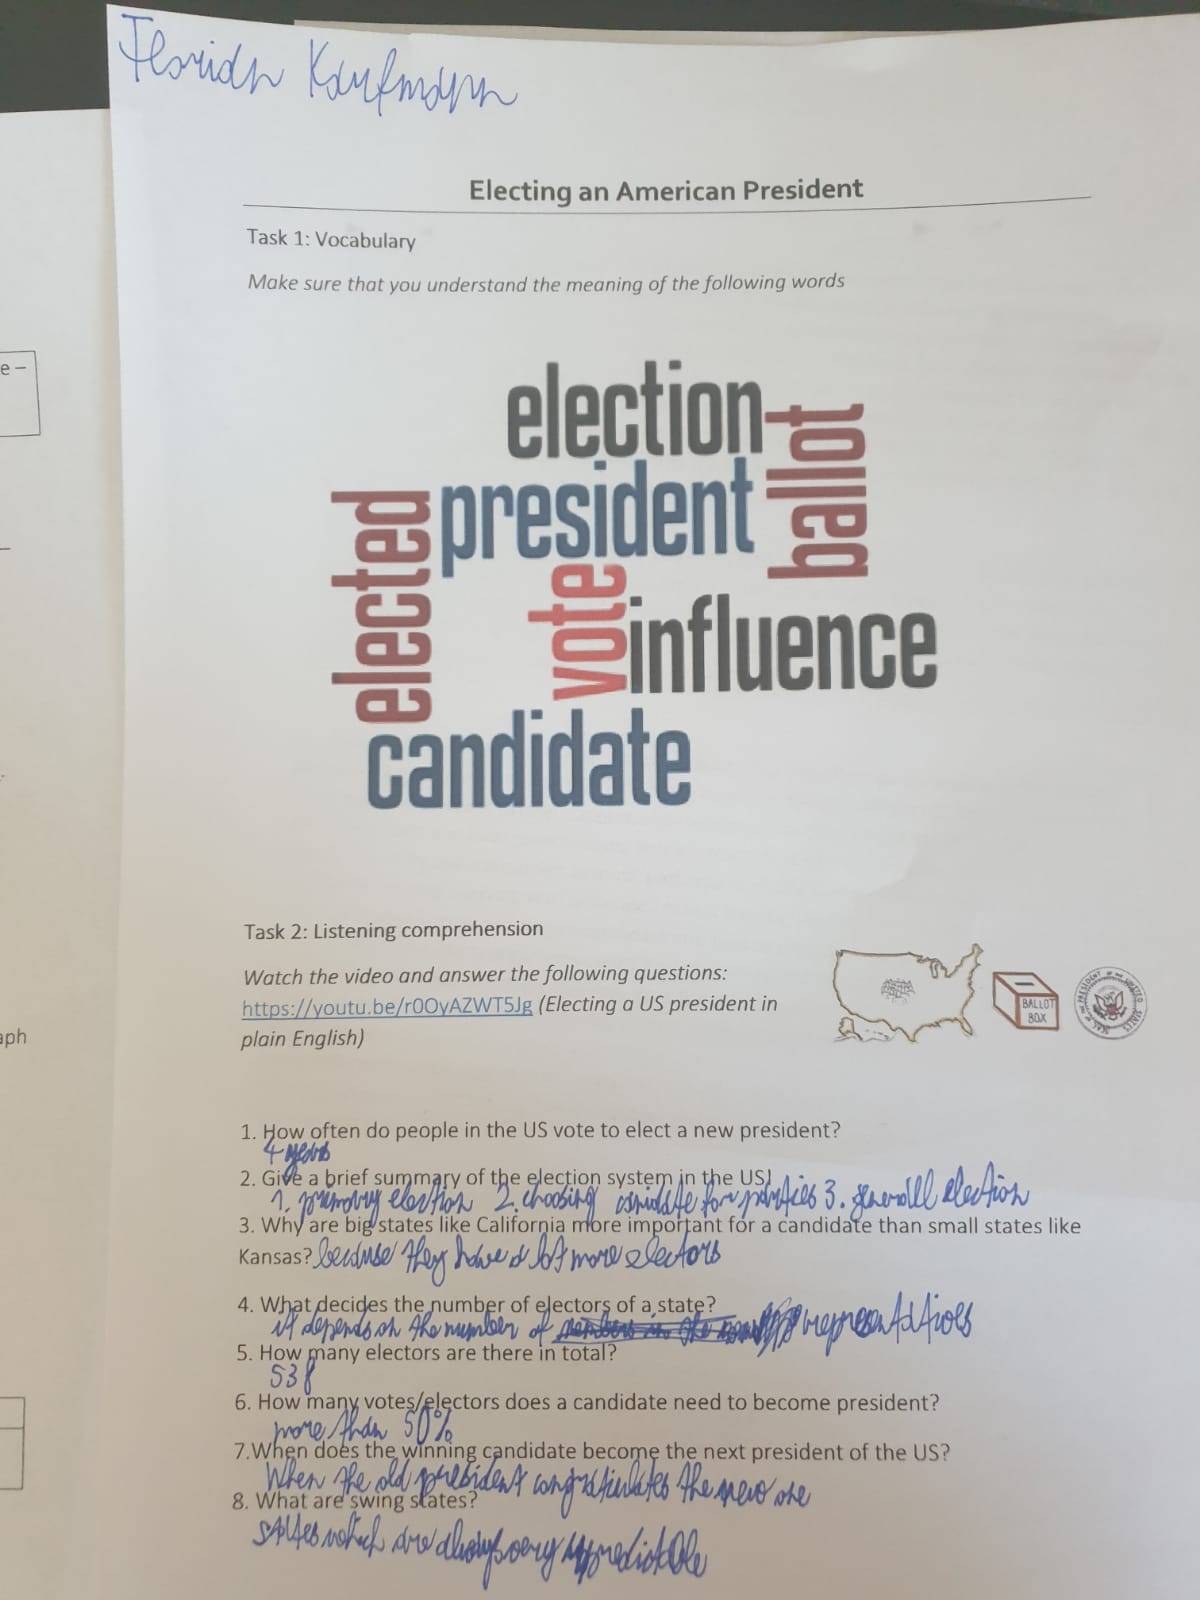 Florian Kaufmann
Electing an American President
Task 1: Vocabulary
Make sure that you understand the meaning of the following words
e –
election
ballot
president
elected
vote
influence
candidate
Task 2: Listening comprehension
Watch the video and answer the following questions:
https://youtu.be/r0OyAZWT5Jg (Electing a US president in
plain English)
BALLOT
BOX
aph
1. How often do people in the US vote to elect a new president?
4 years
2. Give a brief summary of the election system in the US!
1. primary election 2. choosing canidate for parties 3. generall election
3. Why are big states like California more important for a candidate than small states like
Kansas? because they have a lot more electors
4. What decides the number of electors of a state?
it depends on the number of representatives
5. How many electors are there in total?
538
6. How many votes/electors does a candidate need to become president?
more than 50%
7.When does the winning candidate become the next president of the US?
When the old president congratiulates the new one
8. What are swing states?
states which are always very unpredictable